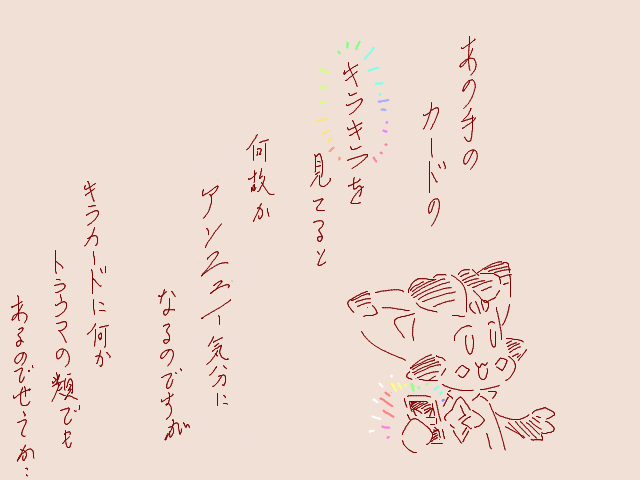 あの手の
カードの
キラキラを
見てると
何故か
アンニュイ気分に
なるのですが
キラカードに何か
トラウマの類でも
あるのでせうか…